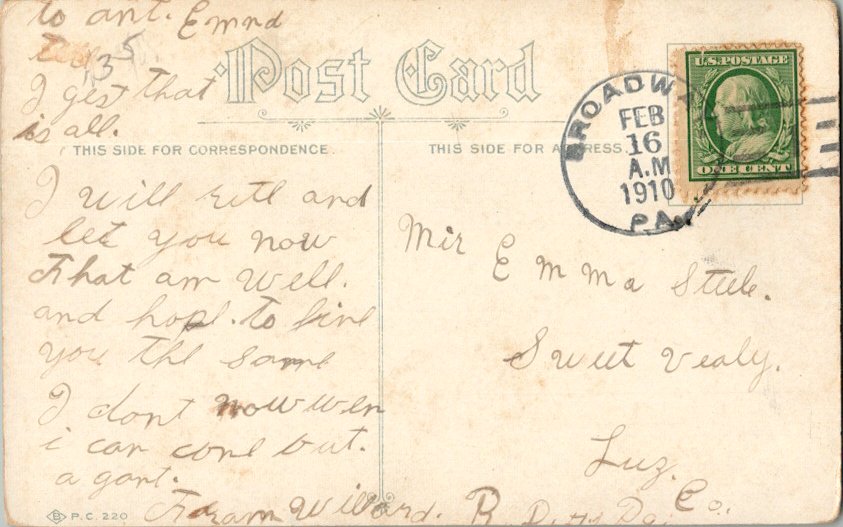 to ant. Emnd
135
I gest that
is all.
Post Card
THIS SIDE FOR CORRESPONDENCE.
THIS SIDE FOR ADDRESS.
BROADWAY
FEB
16
A.M
1910
PA.
U.S. POSTAGE
ONE CENT
I will ritl and
let you now
that am well.
and hope. to fine
you the same
I dont now wen
i can come out.
a gant.
Fram Willard.
Mir Emma Steele.
Sweet Vealy.
Luz. Co.
R D. Pa.
B P.C. 220